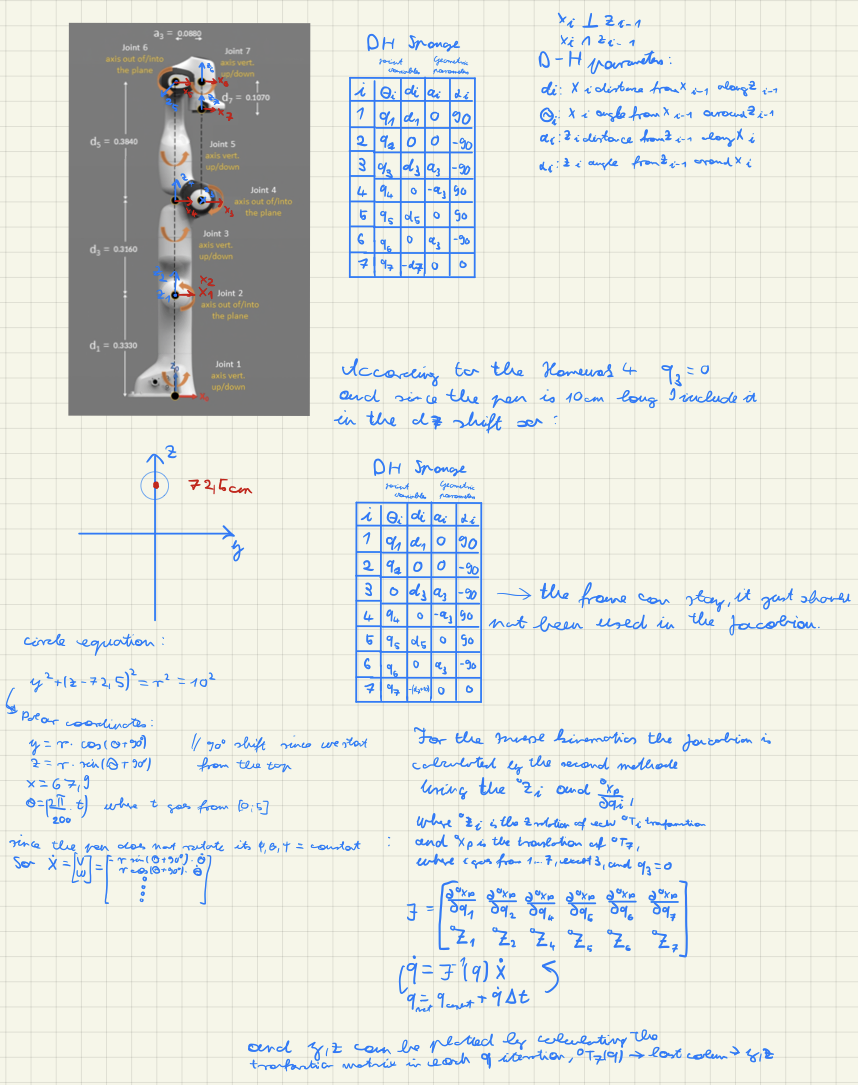 a₃ = 0.0880
Joint 6
axis out of/into
the plane
Joint 7
axis vert.
up/down
d₇ = 0.1070
x₇
d₅ = 0.3840
Joint 5
axis vert.
up/down
Joint 4
axis out of/into
the plane
d₃ = 0.3160
Joint 3
axis vert.
up/down
x₂
x₁
z₁
Joint 2
axis out of/into
the plane
d₁ = 0.3330
Joint 1
axis vert.
up/down
DH Sponge
joint variables
Geometric parameters
i θi di ai αi
1 q₁ d₁ 0 90
2 q₂ 0 0 -90
3 q₃ d₃ a₃ -90
4 q₄ 0 -a₃ 90
5 q₅ d₅ 0 90
6 q₆ 0 a₃ -90
7 q₇ -d₇ 0 0
xᵢ ⊥ zᵢ₋₁
xᵢ ∩ zᵢ₋₁
D-H parameters:
dᵢ: xᵢ distance from xᵢ₋₁ along zᵢ₋₁
θᵢ: xᵢ angle from xᵢ₋₁ around zᵢ₋₁
aᵢ: zᵢ distance from zᵢ₋₁ along xᵢ
αᵢ: zᵢ angle from zᵢ₋₁ around xᵢ
According to the Homewas 4 q₃ = 0
and since the pen is 10cm long I include it
in the d7 shift so:
z
72,5cm
y
DH Sponge
joint variables
Geometric parameters
i θi di ai αi
1 q₁ d₁ 0 90
2 q₂ 0 0 -90
3 0 d₃ a₃ -90
4 q₄ 0 -a₃ 90
5 q₅ d₅ 0 90
6 q₆ 0 a₃ -90
7 q₇ 0 0
→ the frame can stay, it just should
not been used in the Jacobian.
circle equation:
y² + (z - 72,5)² = r² = 10²
Polar coordinates:
y = r · cos(θ+90°) // 90° shift since we start
z = r · sin(θ+90°) from the top
x = 67,9
θ = (2π/200 · t) where t goes from [0;5]
since the pen does not rotate its φ,θ,ψ = constat
Sor Ẋ = [V ω] = [-r sin(θ+90°) · θ̇
r cos(θ+90°) · θ̇
0
0
0
0]
For the inverse kinematics the Jacobian is
calculated by the second methode
Using the ⁰Zᵢ and ∂⁰xₚ/∂qᵢ,
where ⁰Zᵢ is the Z rotation of each ⁰Tᵢ
and ⁰Xₚ is the translation of ⁰T₇,
where i goes from 1...7, except 3, and q₃ = 0
J = [∂⁰xₚ/∂q₁ ∂⁰xₚ/∂q₂ ∂⁰xₚ/∂q₄ ∂⁰xₚ/∂q₅ ∂⁰xₚ/∂q₆ ∂⁰xₚ/∂q₇
⁰Z₁ ⁰Z₂ ⁰Z₄ ⁰Z₅ ⁰Z₆ ⁰Z₇]
q̇ = J⁻¹(q) Ẋ
q = q + q̇ Δt
and y,z can be plotted by calculating the
matrix in each q iteration, ⁰T₇(q) → last column → y,z